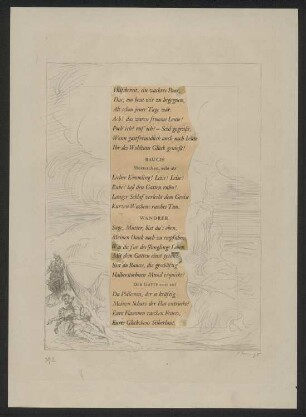 Hilfsbereit, ein wackres Paar,
Das, um heut mir zu begegnen,
Alt schon jener Tage war.
Ach! das waren fromme Leute!
Poch' ich? ruf' ich? — Seid gegrüßt,
Wenn gastfreundlich auch noch heute
Ihr des Wohltuns Glück genießt!
BAUCIS
Lieber Kömmling! Leise! Leise!
Ruhe! laß den Gatten ruhn!
Langer Schlaf verleiht dem Greise
Kurzen Wachens rasches Tun.
WANDRER
Sage, Mutter, bist du's eben,
Meinen Dank noch zu empfahn,
Was du für des Jünglings Leben
Mit dem Gatten einst getan?
Bist du Baucis, die geschäftig
Halberstorbnen Mund erquickt?
DER GATTE tritt auf
Du Philemon, der so kräftig
Meinen Schatz der Flut entrückt?
Eure Flammen raschen Feuers,
Eures Glöckchens Silberlaut,